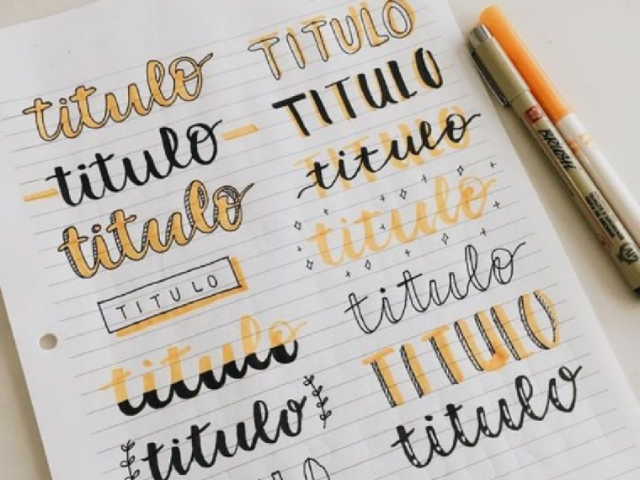 titulo
TITULO
titulo
TITULO
titulo
titulo
titulo
TITULO
titulo
titulo
TITULO
titulo
titulo
BRUSH